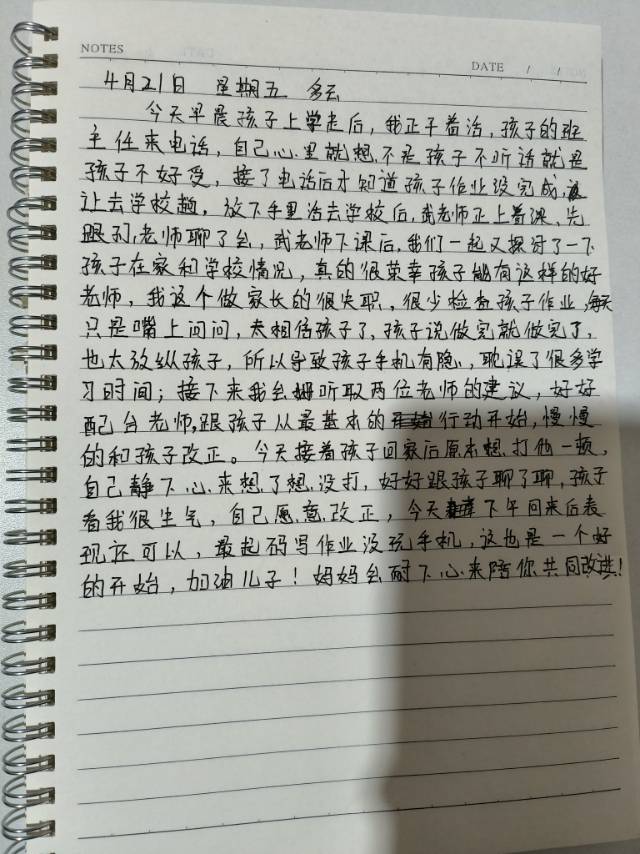 NOTES
DATE / /
4月21日 星期五 多云
今天早晨孩子上学走后，我正干着活，孩子的班
主任来电话，自己心里就想不是孩子不听话就是
孩子不好受，接了电话后才知道孩子作业没完成，
让去学校趟，放下手里活去学校后，武老师正上着课、先
跟刘老师聊了会，武老师下课后，我们一起又探讨了一下
孩子在家和学校情况，真的很荣幸孩子能有这样的好
老师，我这个做家长的很失职，很少检查孩子作业，每天
只是嘴上问问，太相信孩子了，孩子说做完就做完了，
也太放纵孩子，所以导致孩子手机有瘾，耽误了很多学
习时间；接下来我会听取两位老师的建议，好好
配合老师，跟孩子从最基本的行动开始，慢慢
的和孩子改正。今天接着孩子回家后原本想打他一顿，
自己静下心来想了想没打，好好跟孩子聊了聊，孩子
看我很生气，自己愿意改正，今天下午回来后表
现还可以，最起码写作业没玩手机，这也是一个好
的开始，加油儿子！妈妈会耐下心来陪你共同改进！